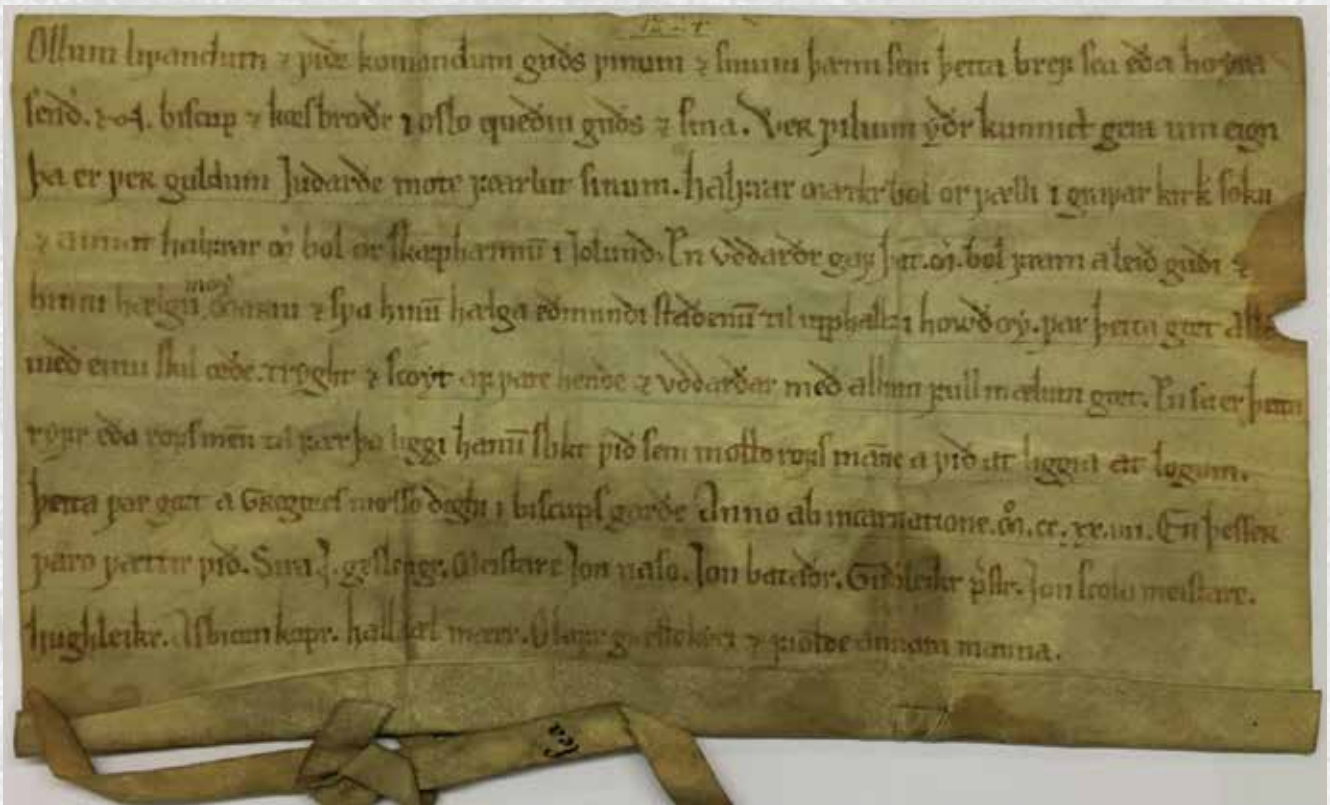 Ollum lifandum ⁊ viðr komandum guðs vinum ⁊ sinum þæim sem þetta bref sea eða hoyra
send. N. biscup ⁊ kæsbroðr i oslo queðiu guðs ⁊ sina. Ver vilium yðr kunnict gera um eign
þa er ver guldum Judarðe mote værlur sinum. halfuar markr bol or vælli i gnipar kirk sokn
⁊ annur halfuar m bol or skæphamnū i Jolund. En Vðdarðr gaf þet. m. bol fram a leið guði ⁊
hinni hælgu møy mariu ⁊ sva hinū hælga eðmundi staðenū til upphallz i howð øy. var þetta gært allt
með einu skil orðe. Tryght ⁊ scoyt af vare hende ⁊ Vðdarðar með allum full mælum gært. En sa er þetta
ryfr eða rofsmen til fær þa liggi hanū slikt við sem motto rofs māne a við at liggia at logum.
þetta var gært a Gregories messo deghi i biscups garðe Anno ab incarnatione. M. cc. xx. iiii. En þesser
varo vattar við. Sira geslengr. Meistare Jon naso. Jon bataðr. Guðleikr pstr. Jon scolo meistare.
hughleikr. Asbiorn kapr. hallkæl mærr. Olafr gæstekiær ⁊ fiolde annara manna.
1224